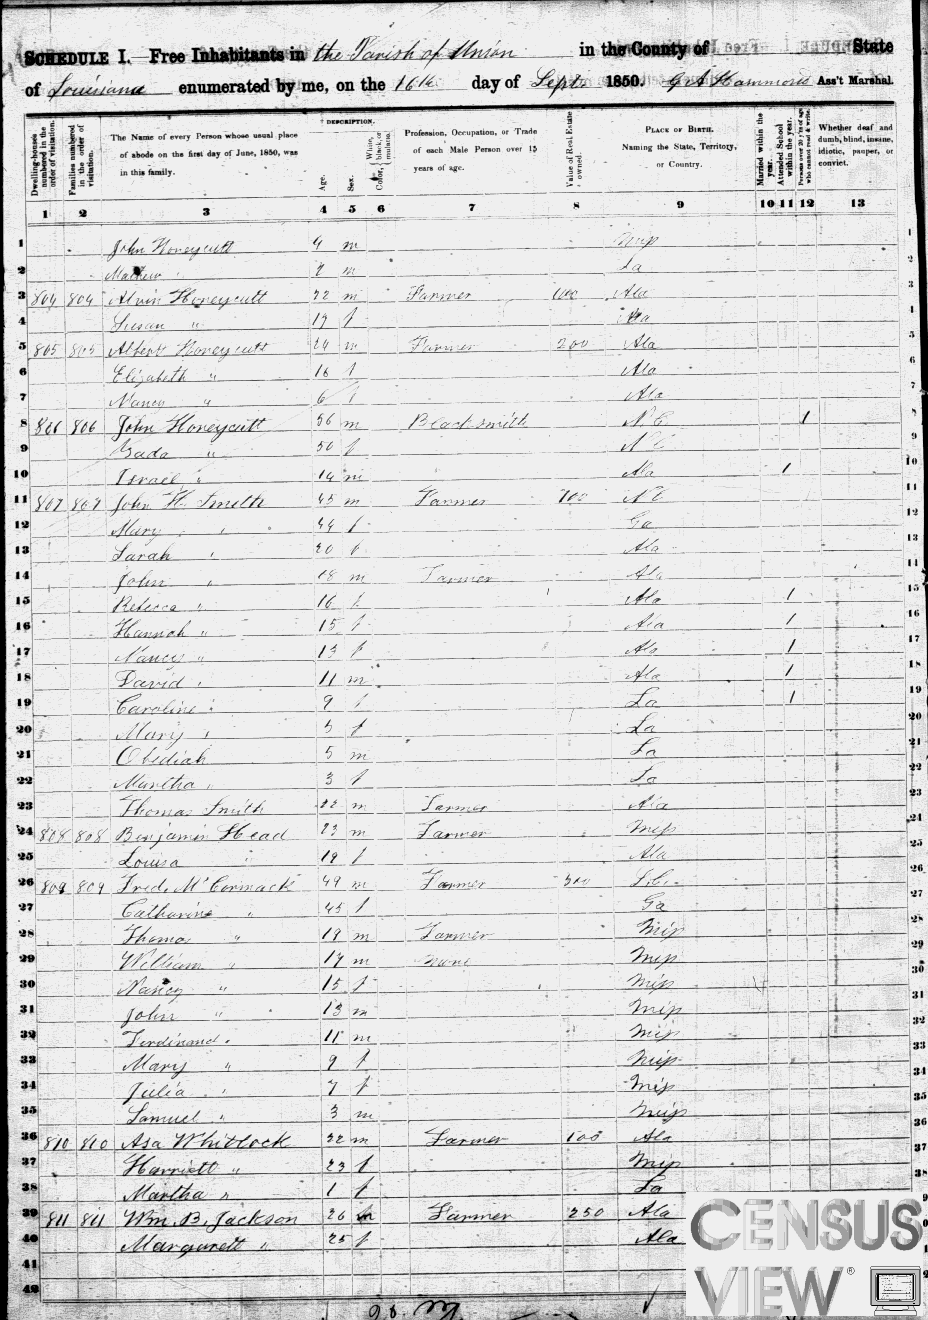 SCHEDULE I. Free Inhabitants in the Parish of Union in the County of State
of Louisiana enumerated by me, on the 16th day of Sept. 1850. Ass't Marshal.
Dwelling-houses numbered in the order of visitation.
Families numbered in the order of visitation.
The Name of every Person whose usual place of abode on the first day of June, 1850, was in this family.
DESCRIPTION.
Age.
Sex.
White, black, or mulatto.
Color,
Profession, Occupation, or Trade of each Male Person over 15 years of age.
Value of Real Estate owned.
PLACE OF BIRTH. Naming the State, Territory, or Country.
Married within the year.
Attended School within the year.
Persons over 20 y'rs of age who cannot read & write.
Whether deaf and dumb, blind, insane, idiotic, pauper, or convict.
1 2 3 4 5 6 7 8 9 10 11 12 13
1 John Honeycutt 9 m Mip 1
2 Mathew " 2 m La 2
3 804 804 Alvin Honeycutt 22 m Farmer 100 Ala 3
4 Susan " f Ala 4
5 805 805 Albert Honeycutt 24 m Farmer 200 Ala 5
6 Elizabeth " 16 f Ala 6
7 Nancy " 6 f Ala 7
8 806 806 John Honeycutt 56 m Blacksmith N C 1 8
9 " 50 f N C 9
10 Israel " 14 m Ala 1 10
11 807 807 John H. Smith 45 m Farmer 700 N C 11
12 Mary " 44 f Ga 12
13 Sarah " 20 f Ala 13
14 John " 18 m Farmer Ala 14
15 Rebecca " 16 f Ala 1 15
16 Hannah " 15 f Ala 1 16
17 Nancy " 13 f Ala 1 17
18 David " 11 m Ala 1 18
19 Caroline " 9 f La 1 19
20 Mary " 5 f La 20
21 Obediah 5 m La 21
22 Martha " 3 f La 22
23 Thomas Smith 22 m Farmer Ala 23
24 808 808 Benjamin Head 23 m Farmer Mip 24
25 Louisa " 19 f Ala 25
26 809 809 Fred. McCormack 49 m Farmer 300 S.C. 26
27 Catharine " 45 f Ga 27
28 Thomas " 19 m Farmer Mip 28
29 William " 17 m none Mip 29
30 Nancy " 15 f Mip 30
31 John " 13 m Mip 31
32 Ferdinand " 11 m Mip 32
33 Mary " 9 f Mip 33
34 Julia " 7 f Mip 34
35 Samuel " 3 m Mip 35
36 810 810 Asa Whitlock 22 m Farmer 100 Ala 36
37 Harriett " 23 f Mip 37
38 Martha " 1 f La 38
39 811 811 Wm. B. Jackson 26 m Farmer 250 Ala
40 Margarett " 25 f Ala
41
42
CENSUS
VIEW®